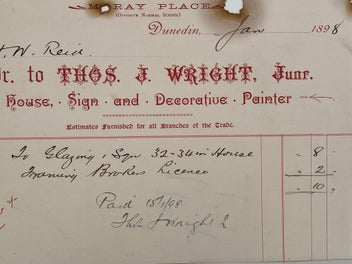 MORAY PLACE
(OPPOSITE NORMAL SCHOOL)
Dunedin, Jan 1898
W. Reid
Dr. to THOS. J. WRIGHT, Junr.
House, Sign and Decorative Painter
Estimates Furnished for all Branches of the Trade.
To Glazing 1 Sqr 32-34 in House 8
Framing Brokers Licence 2
10
Paid 15/1/98
Thos J Wright J